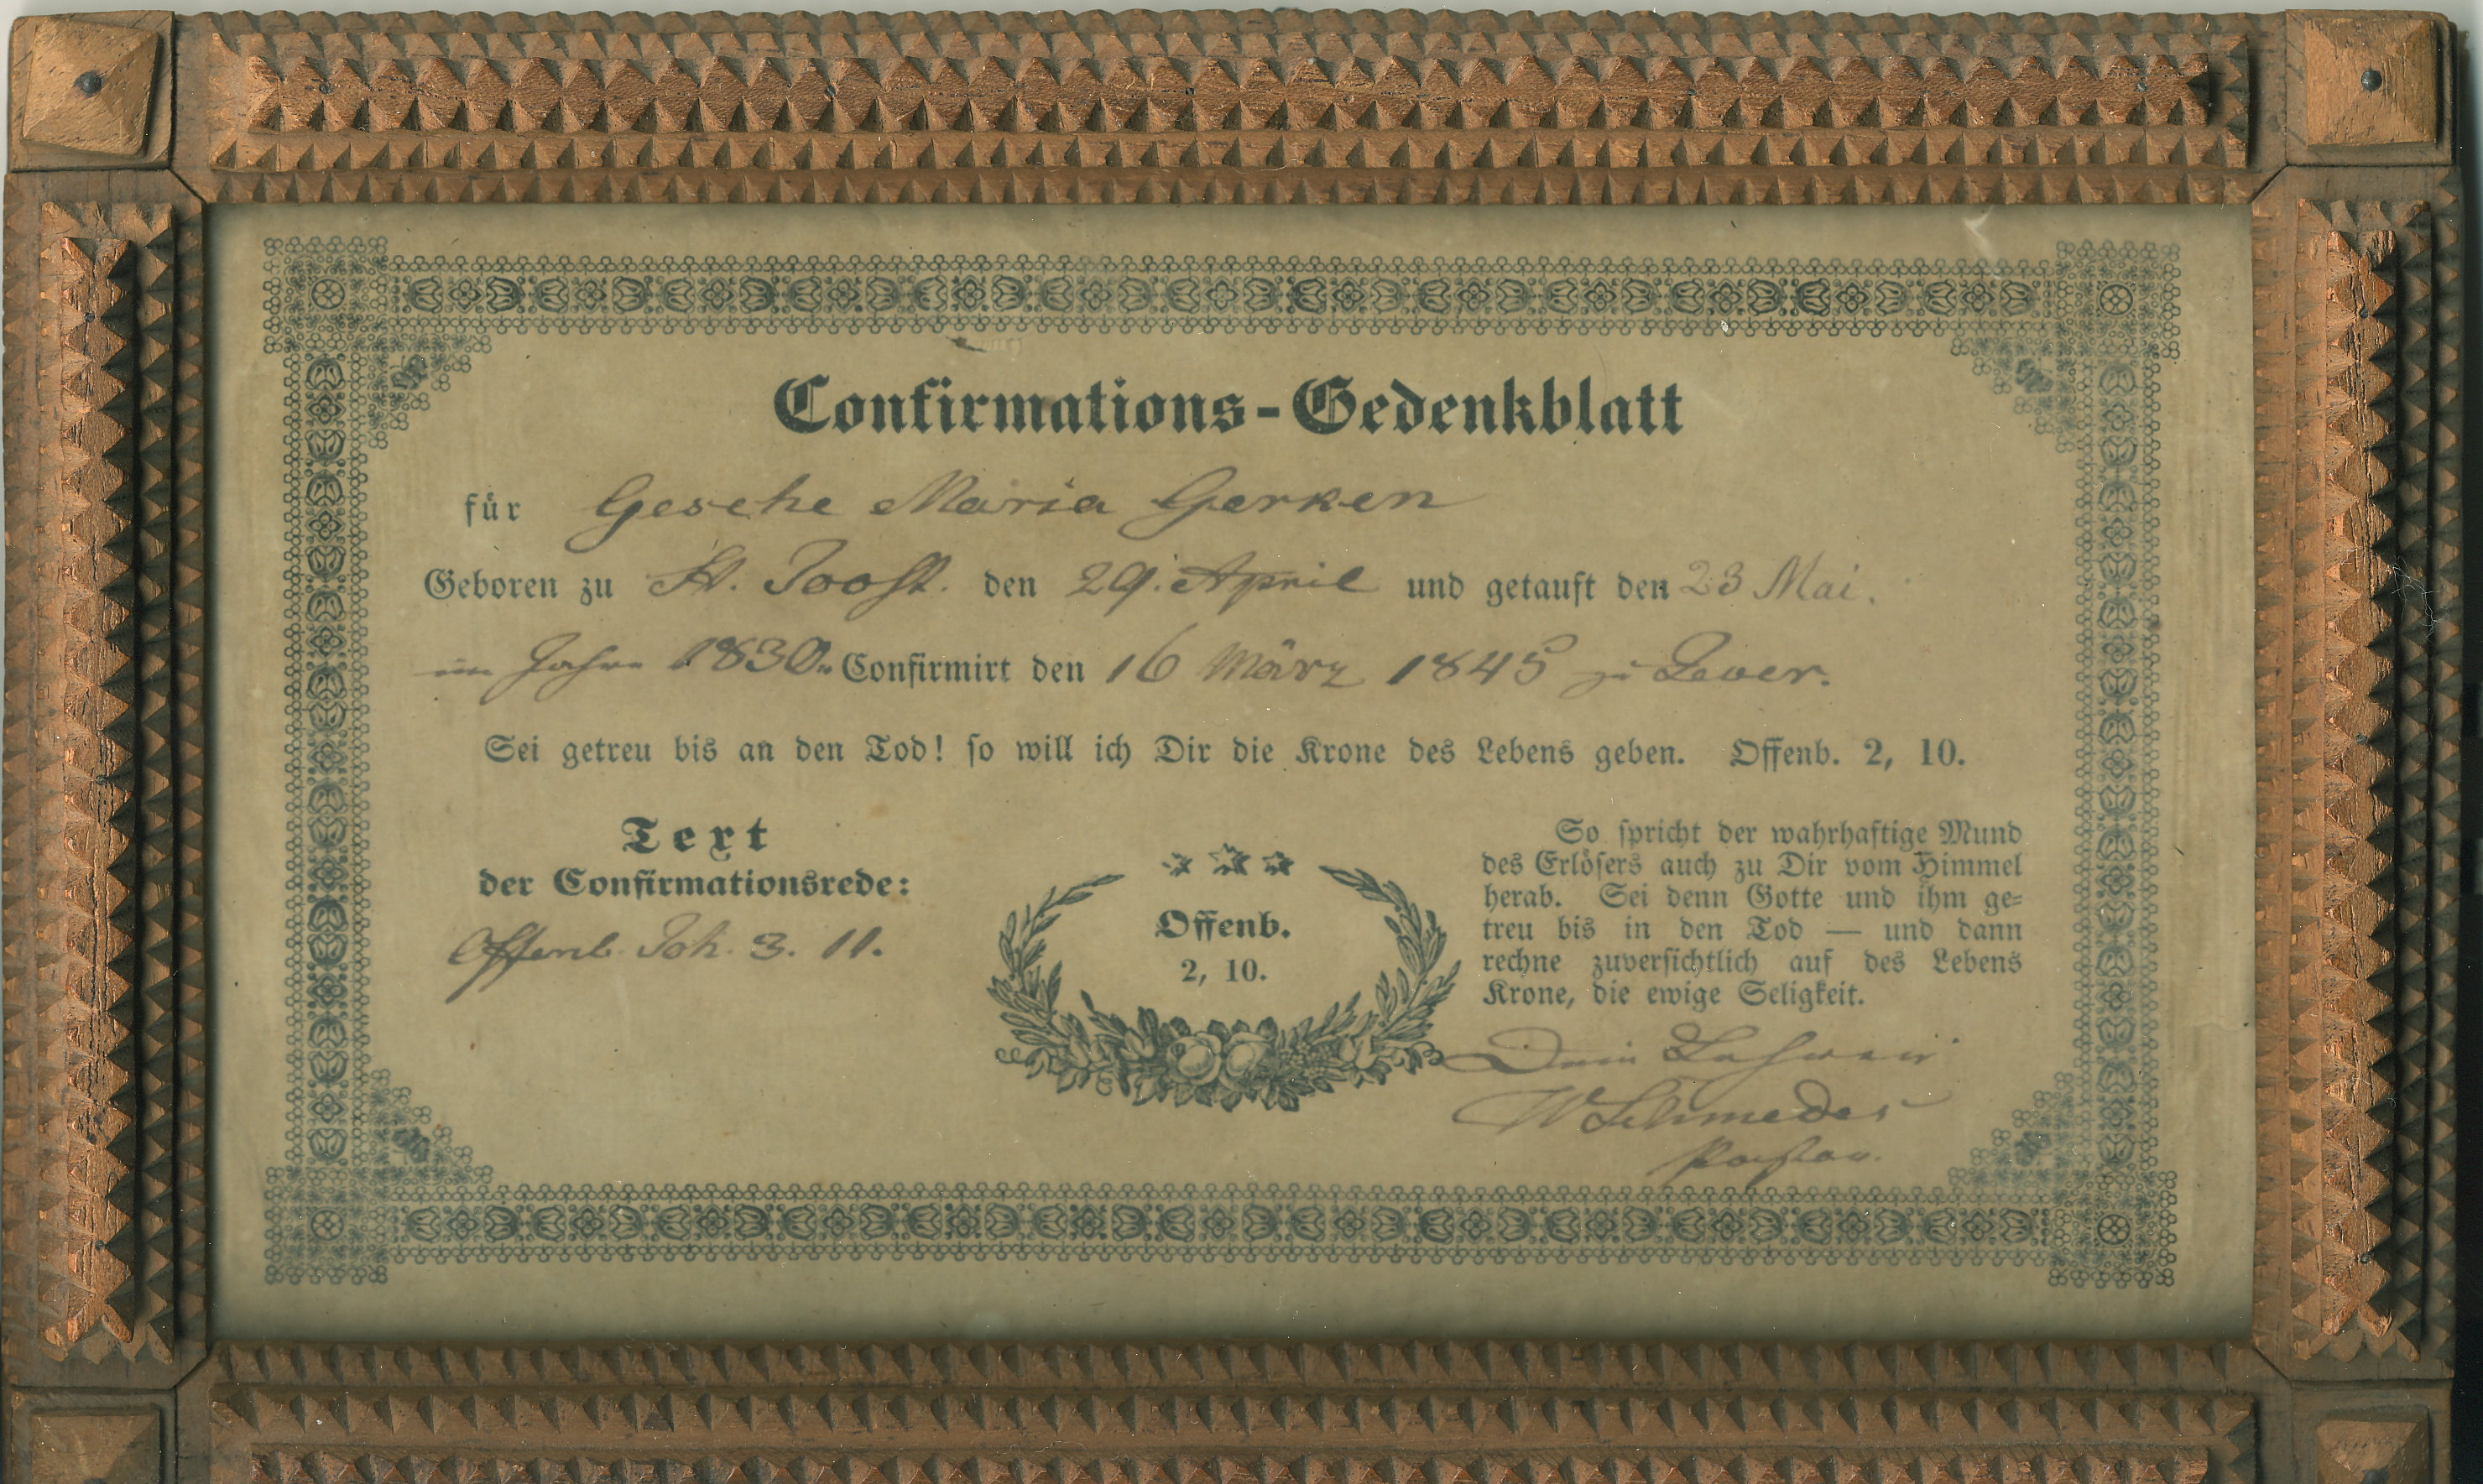 Confirmations-Gedenkblatt
für Gesche Maria Gerken
Geboren zu St. Joost. den 29. April und getauft den 23 Mai.
im Jahre 1830. Confirmirt den 16 März 1845 zu Jever.
Sei getreu bis an den Tod! so will ich Dir die Krone des Lebens geben. Offenb. 2, 10.
Text
der Confirmationsrede:
Offenb. Joh. 3. 11.
Offenb.
2, 10.
So spricht der wahrhaftige Mund
des Erlösers auch zu Dir vom Himmel
herab. Sei denn Gotte und ihm ge=
treu bis in den Tod — und dann
rechne zuversichtlich auf des Lebens
Krone, die ewige Seligkeit.
Dein Lehrer
W Schmedes
Pastor.